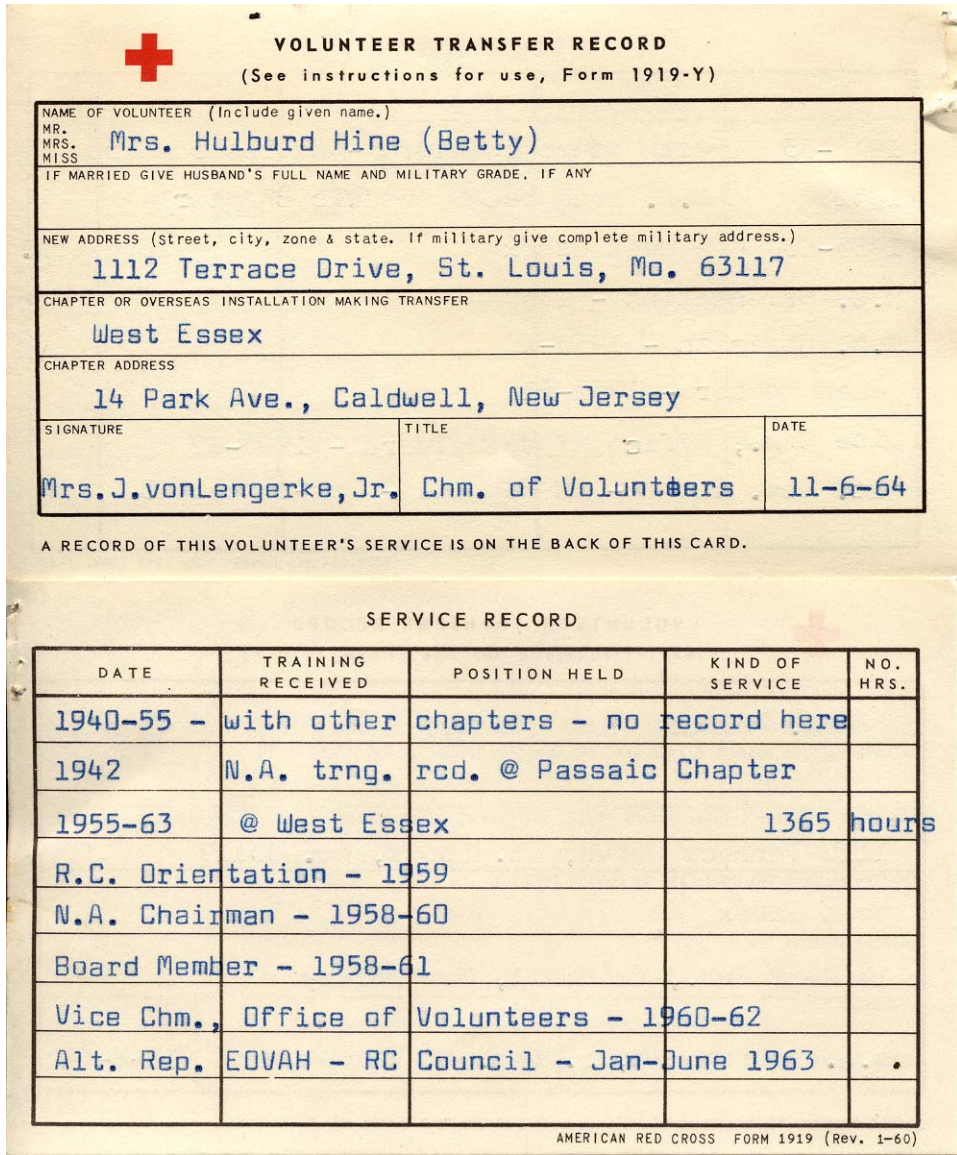 VOLUNTEER TRANSFER RECORD
(See instructions for use, Form 1919-Y)
NAME OF VOLUNTEER (Include given name.)
MR.
MRS.
MISS
Mrs. Hulburd Hine (Betty)
IF MARRIED GIVE HUSBAND'S FULL NAME AND MILITARY GRADE, IF ANY
NEW ADDRESS (Street, city, zone & state. If military give complete military address.)
1112 Terrace Drive, St. Louis, Mo. 63117
CHAPTER OR OVERSEAS INSTALLATION MAKING TRANSFER
West Essex
CHAPTER ADDRESS
14 Park Ave., Caldwell, New Jersey
SIGNATURE TITLE DATE
Mrs.J.vonLengerke,Jr. Chm. of Volunteers 11-6-64
A RECORD OF THIS VOLUNTEER'S SERVICE IS ON THE BACK OF THIS CARD.
SERVICE RECORD
DATE TRAINING RECEIVED POSITION HELD KIND OF SERVICE NO. HRS.
1940-55 - with other chapters - no record here
1942 N.A. trng. rcd. @ Passaic Chapter
1955-63 @ West Essex 1365 hours
R.C. Orientation - 1959
N.A. Chairman - 1958-60
Board Member - 1958-61
Vice Chm., Office of Volunteers - 1960-62
Alt. Rep. EOVAH - RC Council - Jan-June 1963
AMERICAN RED CROSS FORM 1919 (Rev. 1-60)